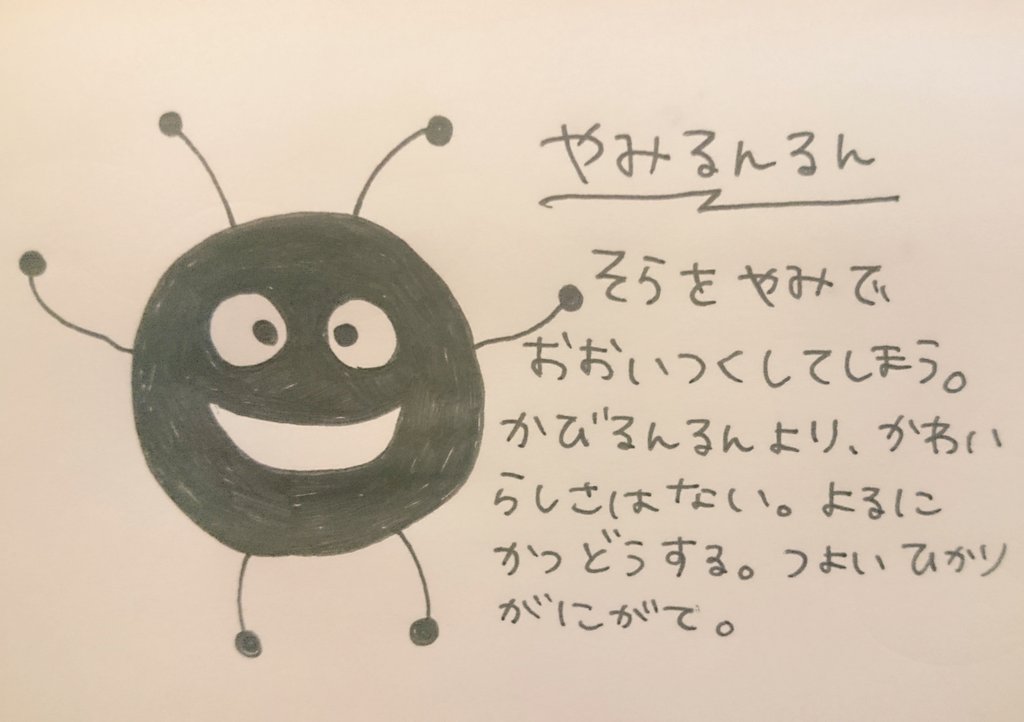 やみるんるん
そらをやみで
おおいつくしてしまう。
かびるんるんより、かわい
らしさはない。よるに
かつどうする。つよいひかり
がにがて。